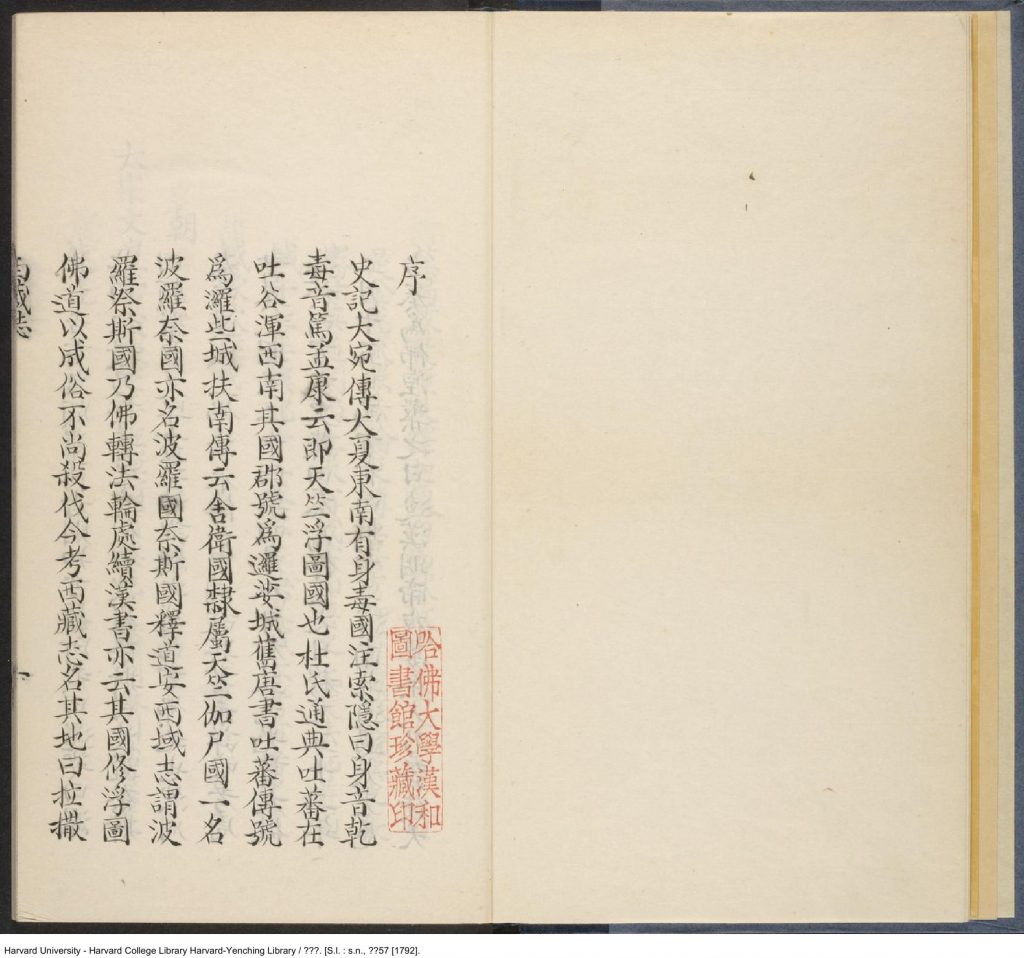 序
史記大宛傳大夏東南有身毒國注索隱曰身音乾
毒音篤孟康云即天竺浮圖國也杜氏通典吐蕃在
吐谷渾西南其國郡號爲邏娑城舊唐書吐蕃傳號
爲邏些城扶南傳云舍衛國隸屬天竺伽尸國一名
波羅奈國亦名波羅國奈斯國釋道安西域志謂波
羅奈斯國乃佛轉法輪處續漢書亦云其國修浮圖
佛道以成俗不尚殺伐今考西藏志名其地曰拉撒
西藏志
一
哈佛大學漢和
圖書館珍藏印
Harvard University - Harvard College Library Harvard-Yenching Library / ???. [S.l. : s.n., ??57 [1792].